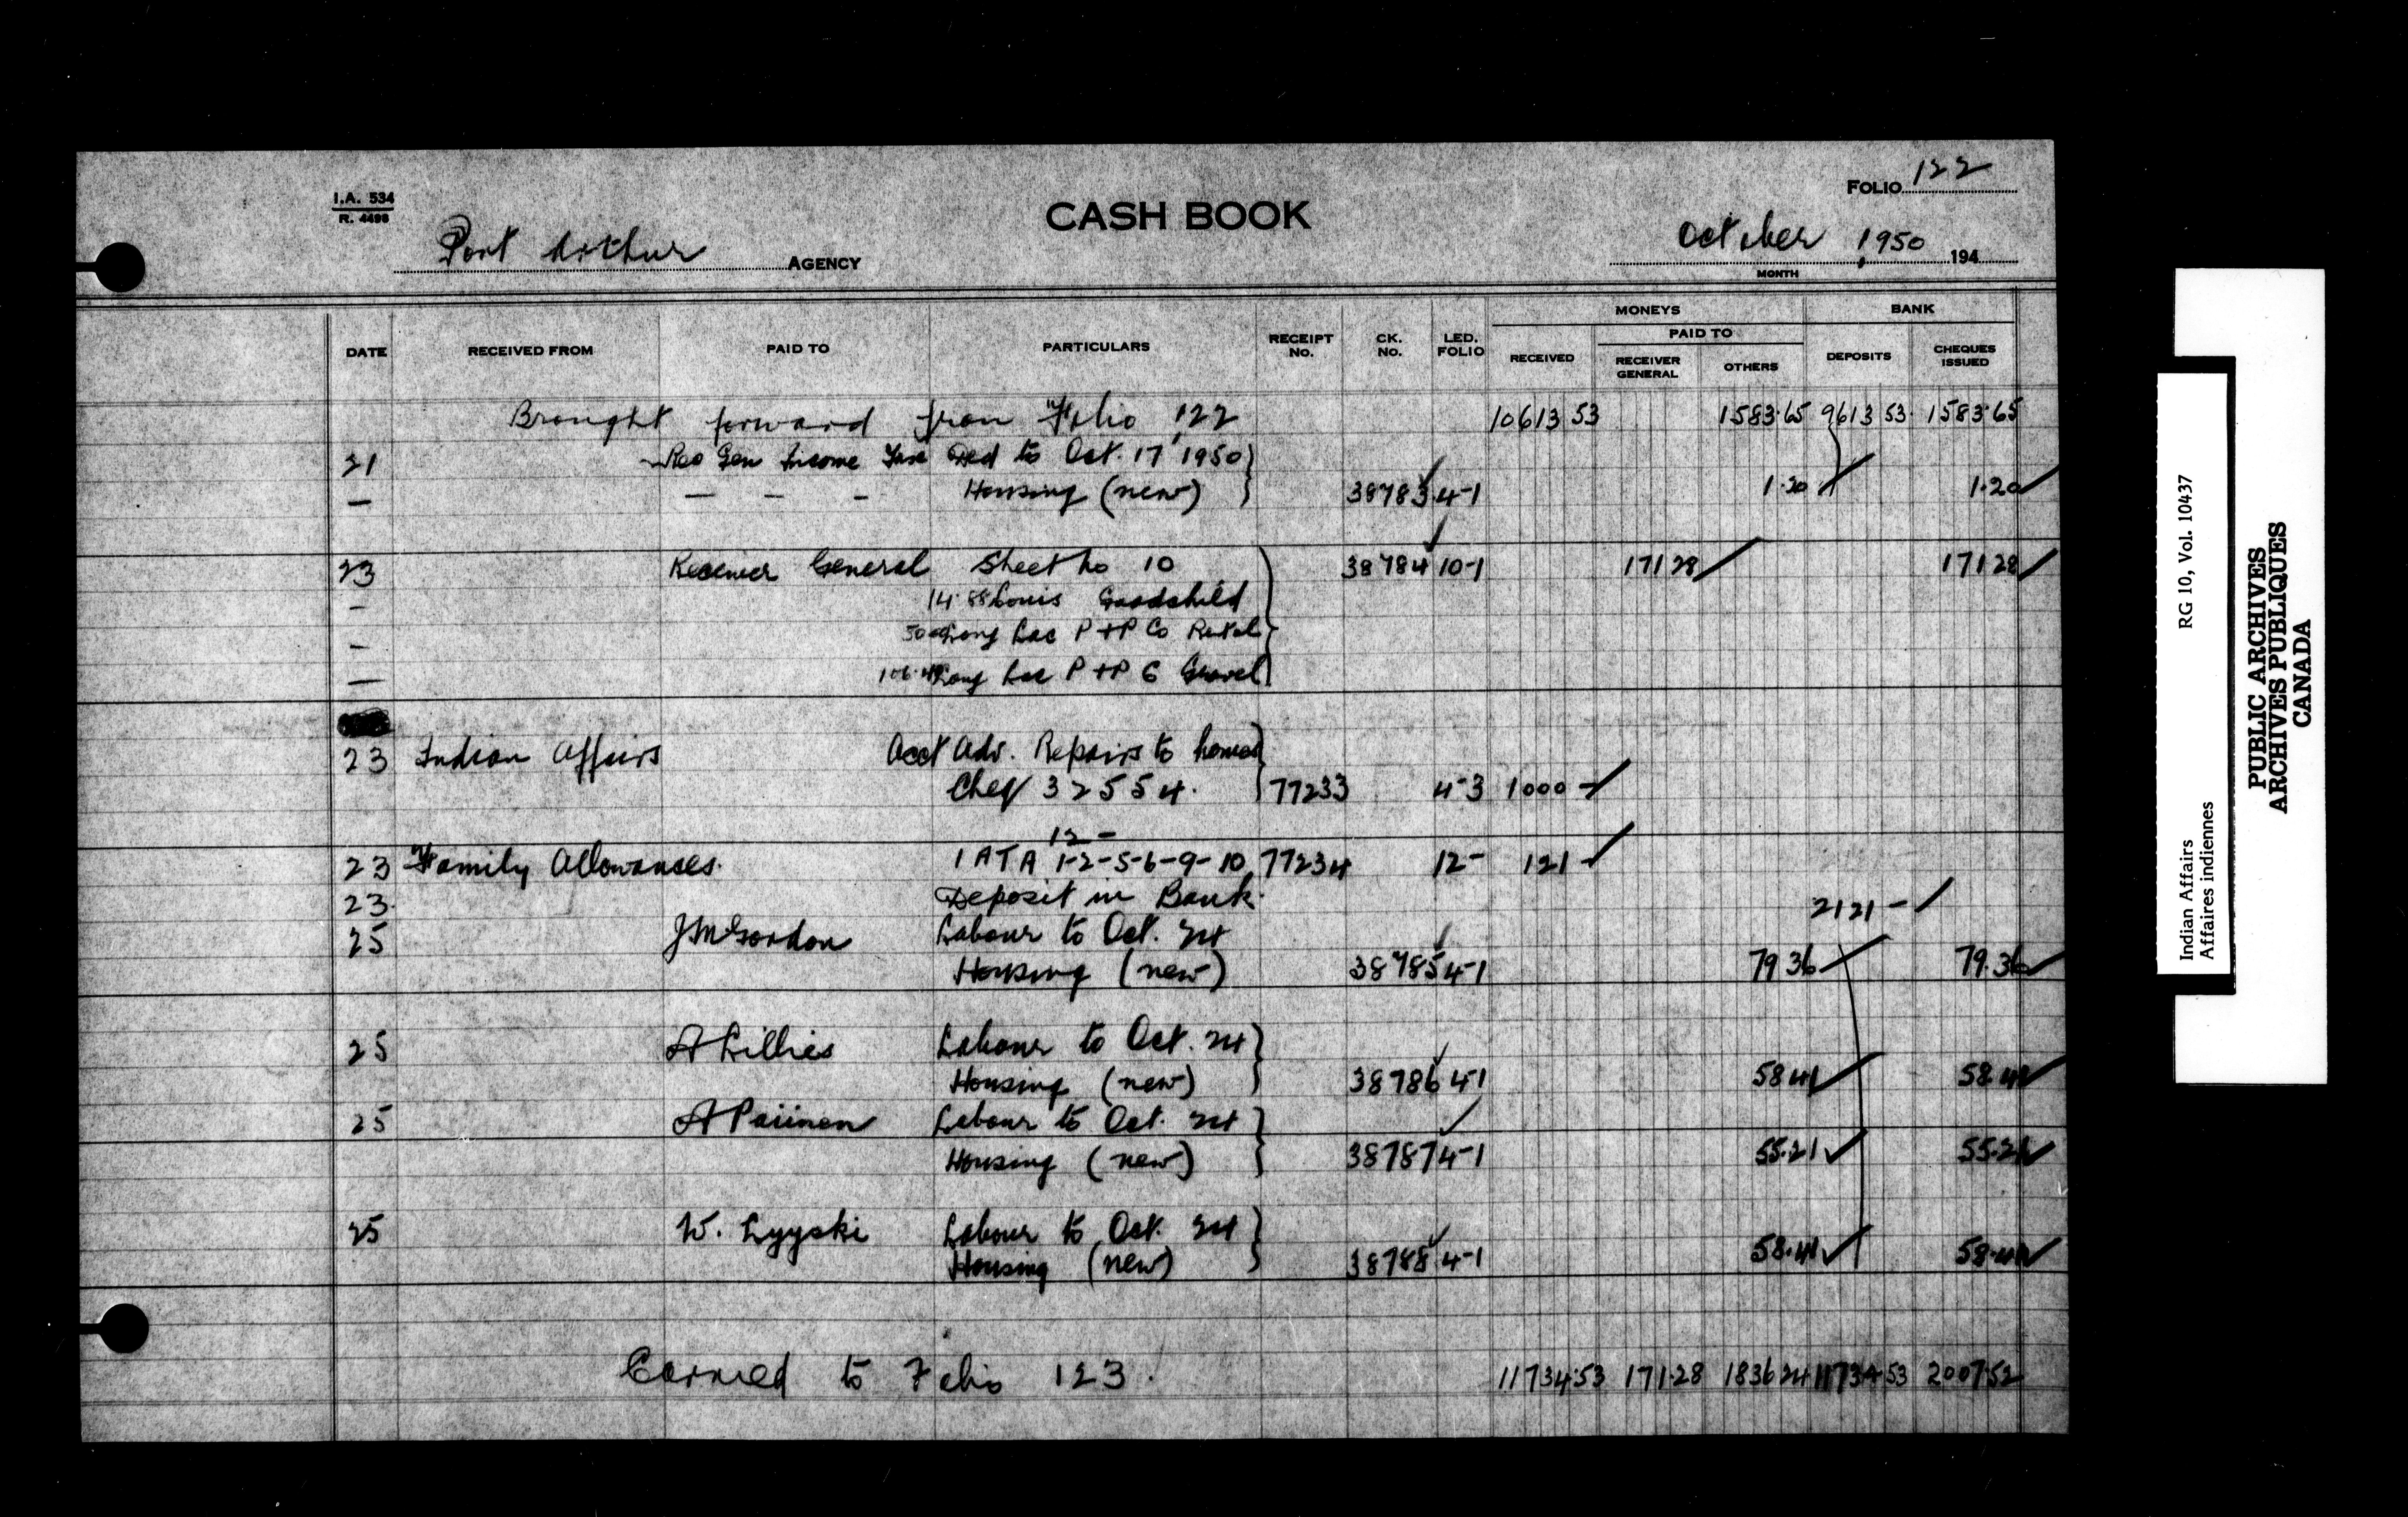 I.A. 534
R. 4498
FOLIO 122
CASH BOOK
Port Arthur AGENCY
October 1950 194
MONTH
MONEYS BANK
PAID TO
DATE RECEIVED FROM PAID TO PARTICULARS RECEIPT NO. CK. NO. LED. FOLIO RECEIVED RECEIVER GENERAL OTHERS DEPOSITS CHEQUES ISSUED
Brought forward from Folio 122 10613 53 1583.65 9613 53 1583.65
21 Rec Gen Income Tax Ded to Oct. 17 1950
— — — - Housing (new) 38783 4-1 1.20 1.20
23 Receiver General Sheet No 10 38784 10-1 171 28 171 28
- 14.88 Louis Goodchild
- 50.00 Long Lac P+P Co Rental
— 106.40 Long Lac P+P C Gravel
23 Indian Affairs Acct Adv. Repairs to homes
Cheq 32554. 77233 4-3 1000 -
12 -
23 Family Allowances. IATA 1-2-5-6-9-10 77234 12- 121 -
23. Deposit in Bank. 2121 -
25 J McGordon Labour to Oct. 24
Housing (new) 38785 4-1 79 36 79.36
25 A Lillies Labour to Oct. 24
Housing (new) 38786 4-1 58 41 58.41
25 A Paiinen Labour to Oct. 24
Housing (new) 38787 4-1 55.21 55.21
25 W. Lyyski Labour to Oct. 24
Housing (new) 38788 4-1 58.41 58.41
Carried to Folio 123. 11734.53 171.28 1836 24 11734 53 2007 52
Indian Affairs RG 10, Vol. 10437
Affaires indiennes
PUBLIC ARCHIVES
ARCHIVES PUBLIQUES
CANADA